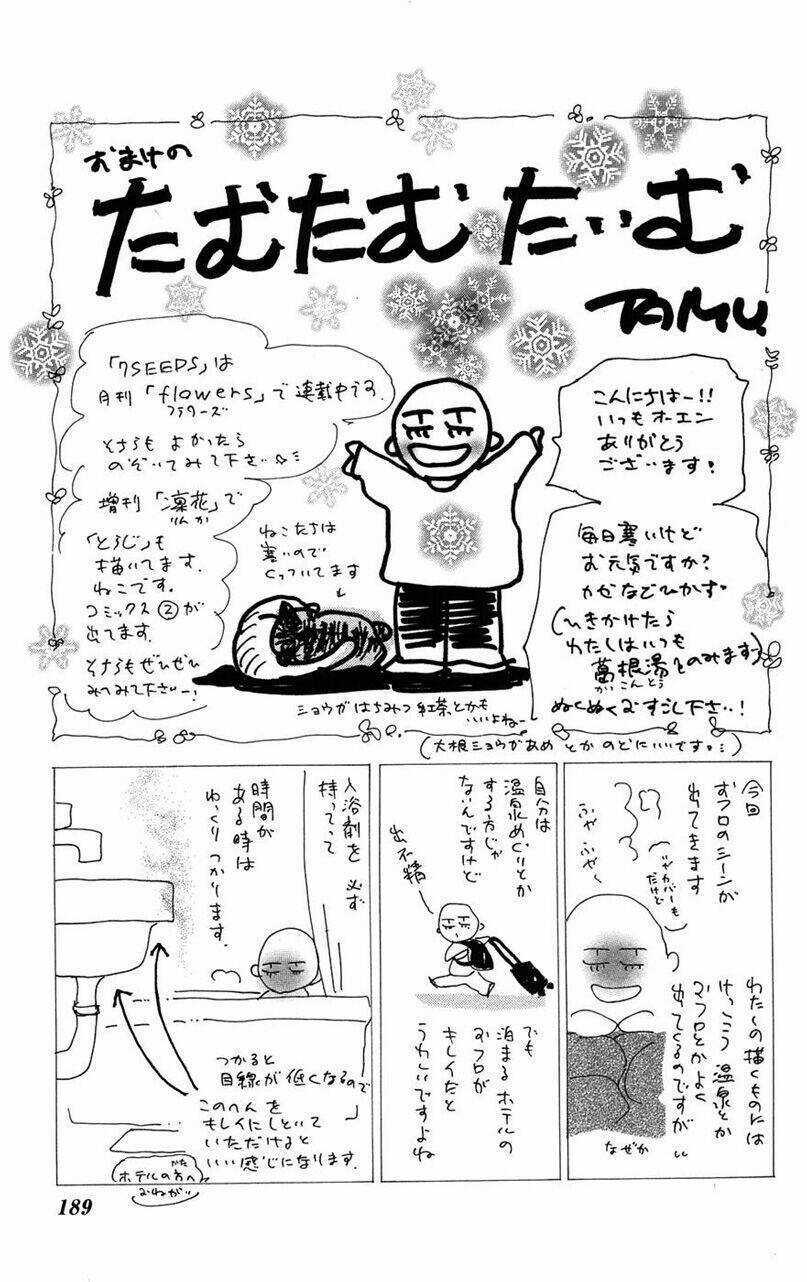 おまけの
たむたむたいむ
TAMU.
こんにちはー!!
いつもオーエン
ありがとう
ございます!
毎日寒いけど
お元気ですか?
かぜなどひかず
(ひきかけたら
わたしはいつも
葛根湯をのみます)
かっこんとう
ぬくぬくおすごし下さい!
「7SEEDS」は
月刊「flowers」で連載中です.
フラワーズ
そちらもよかったら
のぞいてみて下さい☆
増刊「凛花」で
りんか
「とらじ」も
描いてます.
ねこです。
コミックス②が
出てます.
そちらもぜひぜひ
みてみて下さいー!
ねこたちは
寒いので
くっついてます
ショウガはちみつ紅茶とかも
いいよねー
(大根ショウガあめとかのどにいいです。)
今回
おフロのシーンが
出てきます
(カバーも
だけど)
ふや ふや〜
わたしの描くものには
けっこう温泉とか
おフロとかよく
出てくるのですが
なぜか
自分は
温泉めぐりとか
する方じゃ
ないんですけど
出不精
でも
泊まるホテルの
おフロが
キレイだと
うれしいですよね
入浴剤を必ず
持ってって
時間が
ある時は
ゆっくりつかります.
つかると
目線が低くなるので
このへんを
キレイにしといて
いただけると
いい感じになります.
(ホテルの方へ
がた
おねがい)
189